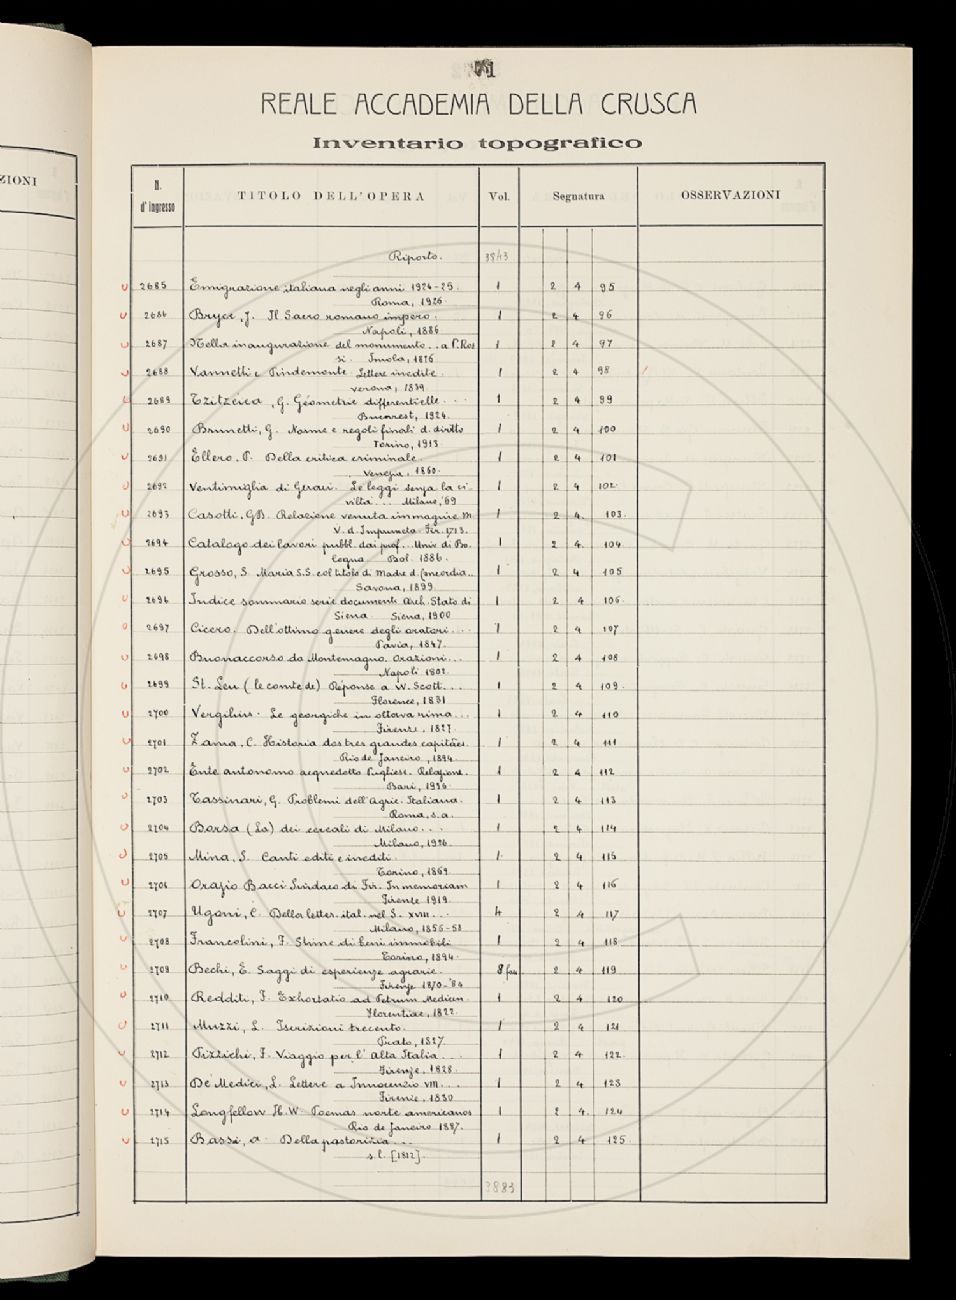 ZIONI
71
REALE ACCADEMIA DELLA CRUSCA
Inventario topografico
N. d'ingresso TITOLO DELL'OPERA Vol. Segnatura OSSERVAZIONI
Riporto. 3843
2685 Emigrazione italiana negli anni 1924-25. 1 2 4 95
Roma, 1926.
2686 Bryce, J. Il Sacro romano impero. 1 2 4 96
Napoli, 1886
2687 Nella inaugurazione del monumento... a P. Ros 1 2 4 97
si. Imola, 1876
2688 Vannetti e Pindemonte. Lettere inedite. 1 2 4 98
Verona, 1839.
2689 Tzitzeica, G. Géometrie differentielle... 1 2 4 99
Bucarest, 1924.
2690 Brunetti, G. Norme e regole finali d. diritto 1 2 4 100
Torino, 1913
2691 Ellero, P. Della critica criminale. 1 2 4 101
Venezia, 1860.
2692 Ventimiglia di Geraci. Le leggi senza la ci- 1 2 4 102.
viltà... Milano, '69
2693 Casotti, GB. Relazione venuta immagine M. 1 2 4. 103.
V. d. Impruneta. Fir. 1713.
2694 Catalogo dei lavori pubbl. dai prof... Univ. di Bo. 1 2 4. 104
logna. Bol. 1886.
2695 Grosso, S. Maria S.S. col titolo di Madre d. Concordia.. 1 2 4 105
Savona, 1899.
2696 Indice sommario serie documenti Arch. Stato di 1 2 4 106.
Siena. Siena, 1900
2697 Cicero. Dell'ottimo genere degli oratori... 1 2 4 107
Pavia, 1847.
2698 Buonaccorso da Montemagno. Orazioni... 1 2 4 108
Napoli 1802.
2699 St. Leu (le comte de) Réponse a W. Scott... 1 2 4 109.
Florence, 1831
2700 Vergilius. Le georgiche in ottava rima... 1 2 4 110
Firenze, 1827.
2701 Zama, C. Historia dos tres grandes capitães. 1 2 4 111
Rio de Janeiro, 1894.
2702 Ente autonomo acquedotto Pugliese. Relazione. 1 2 4 112
Bari, 1926.
2703 Tassinari, G. Problemi dell'Agric. Italiana. 1 2 4 113
Roma, s.a.
2704 Borsa (La) dei cereali di Milano... 1 2 4 114
Milano, 1926.
2705 Mina, S. Canti editi e inediti. 1. 2 4 115
Torino, 1869
2706 Orazio Bacci Sindaco di Fir. In memoriam 1 2 4 116
Firenze 1919.
2707 Ugoni, C. Della letter. ital. nel S. XVIII... 4 2 4 117
Milano, 1856-58
2708 Francolini, F. Stime di beni immobili 1 2 4 118
Torino, 1894.
2709 Bechi, E. Saggi di esperienze agrarie. 8 fas 2 4 119
Firenze 1870-'84
2710 Redditi, F. Exhortatio ad Petrum Medicem 1 2 4 120
Florentiae, 1822.
2711 Muzzi, L. Iscrizioni trecento. 1 2 4 121
Prato, 1827.
2712 Pizzichi, F. Viaggio per l'Alta Italia... 1 2 4 122.
Firenze, 1828.
2713 De' Medici, L. Lettere a Innocenzio VIII... 1 2 4 123
Firenze, 1830
2714 Longfellow H.W. Poemas norte americanos 1 2 4. 124
Rio de Janeiro 1887.
2715 Bassi, A. Della pastorizia... 1 2 4 125.
s.l. [1812].
3883